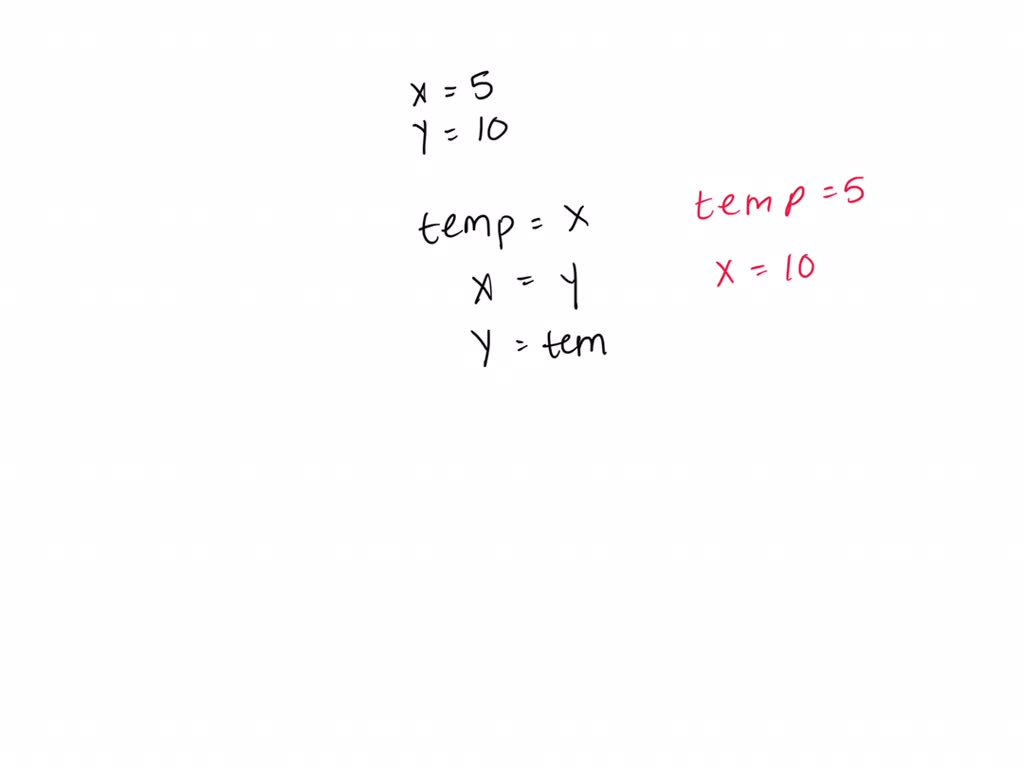 x = 5
y = 10
temp = x
x = y
y = tem
temp = 5
x = 10